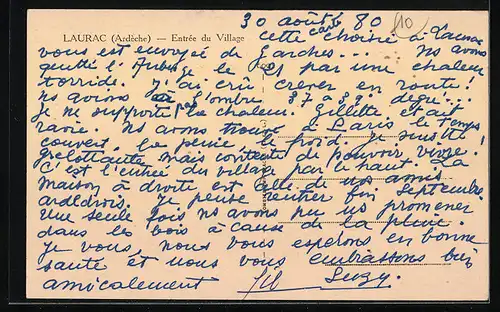 30 août 80
LAURAC (Ardèche) — Entrée du Village
cette carte choisie à Laurac
vous est envoyée de Garches... Ns avons
quitté l'Ardèche le par une chaleur
torride. J'ai crû crever en route!
Ns avions à l'ombre 37 à 39° degr...
je ne supporte pas la chaleur. Gillette était
ravie. Ns avons trouvé à Paris le temps
couvert. la pluie le froid. Je suis
grelottante mais contente de pouvoir vivre!
C'est l'entrée du village par le haut. La
maison à droite est celle de nos amis
ardéchois. Je pense rentrer fin Septembre.
Une seule fois ns avons pu ns promener
dans les bois à cause de la pluie.
Je vous, nous vous espérons en bonne
santé et nous vous embrassons bien
amicalement Suzy.